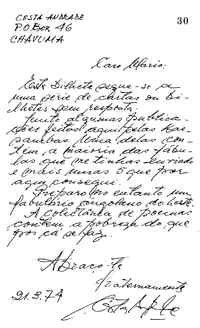 COSTA ANDRADE
P.O.Box 46
CHAVUMA
30
Caro Mário:
Este bilhete segue-se a
uma série de cartas ou bi-
lhetes sem resposta.
Junto algumas publica-
ções feitas aqui pelas
Numa delas con-
tem a maioria das fábu-
las que me tinhas enviado
e mais umas 5 que por
aqui consegui.
Preparo no entanto um
fabulário angolano do Leste.
A coletânea de poemas
contem a pobreza do que
por cá se faz.
Abraço-te
fraternamente
21.3.74